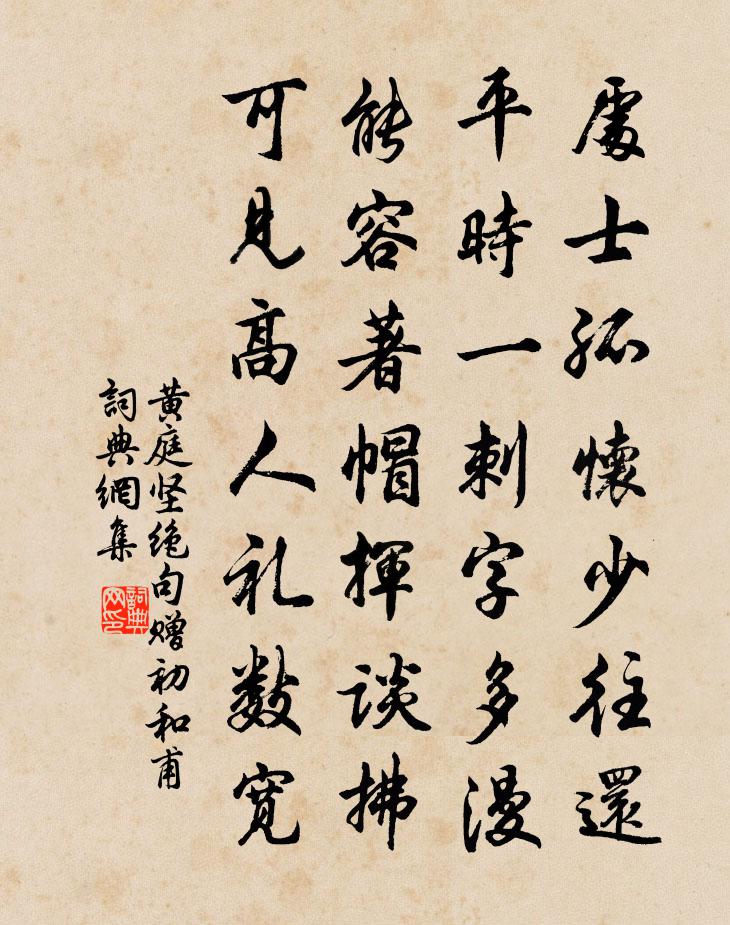 處士孤懷少往還
平時一刺字多漫
能容著帽揮談拂
可見高人礼数寬
黄庭坚绝句赠初和甫
詞典網集
詞典网印